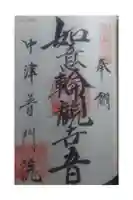 如意輪観世音
中津普門院